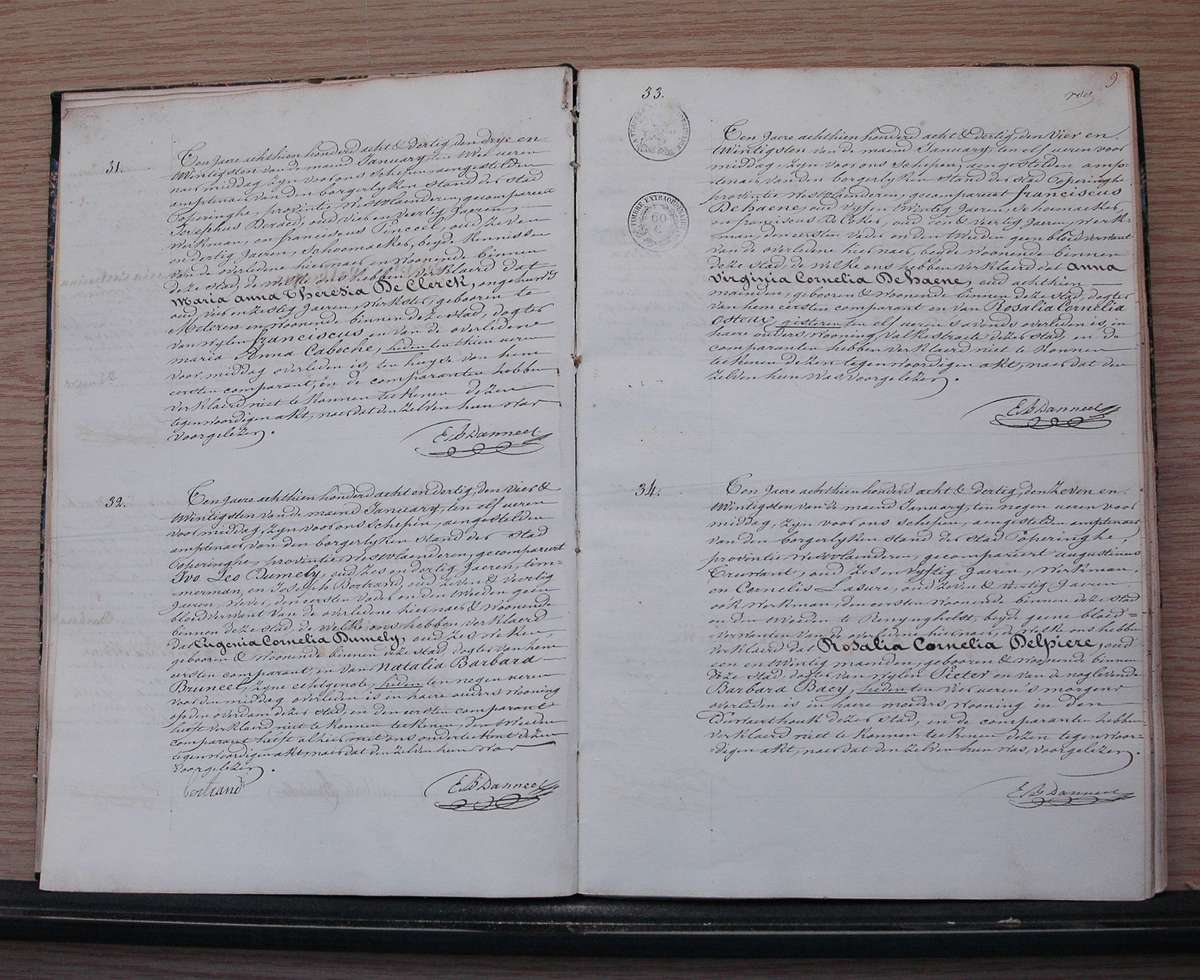 31.
Ten Jaere achthien honderd acht & dertig, den drye en
Wintigsten van de maend January, ten Wel ueren
naer middag zyn voor ons Schepen aengestelden
amptenaer van den borgerlyken Stand der Stad
Poperinghe, provintie Westvlaenderen, gecompareerd
Josephus Beraed, oud vier en Veertig Jaeren
Werkman, en franciscus Pinceel, oud zeven
en dertig Jaeren, Schoenmaeker, beyde Kennissen
van de overledene hiernaer en Woonende binnen
deze Stad, de Welke ons hebben Verklaerd dat
Maria Anna Theresia De Clerck, ongehuwd
oud, vier en zestig Jaeren Werkster, gebooren te
Meteren en Woonende binnen deze Stad, dogter
van wylen franciscus en van de overledene
maria Anna Cabeche, heden ten thien ueren
voor middag overleden is, ten huyse van hem
eersten comparant, en de comparanten hebben
verklaerd niet te konnen teekenen dezen
tegenwoordigen akt, naer dat den zelven hun was
voorgelezen.
E. B. Danneel
32.
Ten Jaere achthien honderd acht en dertig, den Vier &
Wintigsten van de maend January, ten elf ueren
voor middag, zyn voor ons Schepen, aengestelden
amptenaer van den borgerlyken Stand der Stad
Poperinghe, provintie Westvlaenderen, gecompareerd
Ivo Leo Dumely, oud zes en dertig Jaeren, tim-
merman, en Joseph Bertrand, oud zeven & Veertig
Jaeren, den eersten Vader en den Tweeden geen
bloedverwant van de overledene hiernaer & Woonende
binnen deze Stad, de Welke ons hebben verklaerd
dat Eugenia Cornelia Dumely, oud zes weken,
gebooren & Woonende binnen deze Stad dogter van hem
eersten comparant en van Natalia Barbara
Bruneel, zyne echtgenote, heden ten negen ueren
voor den middag overleden is in haere ouders wooning
op den overdam deze Stad en den eersten comparant
heeft verklaerd niet te konnen teekenen, den Tweeden
comparant heeft alhier met ons onderteekent dezen
tegenwoordigen akt, naer dat den zelven hun was
voorgelezen.
Bertrand
E. B. Danneel
9
33.
TIMBRE EXTRAORDINAIRE
60
Ten Jaere achthien honderd acht & dertig, den Vier en
Wintigsten van de maend January, ten elf ueren voor
middag, zyn voor ons Schepen aengestelden amp-
tenaer van den borgerlyken Stand der Stad Poperinghe
provintie Westvlaenderen, gecompareert franciscus
Dehaene, oud Jaeren, Schoenmaeker,
en franciscus De Coker, oud en Veertig Jaeren Werk-
man, den eersten Vader en den Tweeden geen bloedverwant
van de overledene hiernaer, beyde woonende binnen
deze Stad, de welke ons hebben verklaerd dat Anna
Virginia Cornelia Dehaene, oud achthien
maenden, gebooren & Woonende binnen deze Stad, dogter
van hem eersten comparant en van Rosalia Cornelia
Ostede, gisteren ten elf ueren s'avonds overleden is, in
haere ouders wooning, Valkestraete deze Stad, en de
comparanten hebben verklaerd niet te konnen
teekenen dezen tegenwoordigen akt, naer dat den
zelven hun was voorgelezen.
E. B. Danneel
34.
Ten Jaere achthien honderd acht & dertig, den Zeven en
Wintigsten van de maend January, ten negen ueren voor
middag, zyn voor ons Schepen, aengestelden amptenaer
van den borgerlyken Stand der Stad Poperinghe,
provintie Westvlaenderen, gecompareert Augustinus
oud zes en Vyftig Jaeren, Werkman,
en Cornelis Lasure, oud zeven & Jaeren
ook Werkman, den eersten woonende binnen deze Stad
en den Tweeden te Renynghelst, beyde geene bloed-
verwanten van de overledene hiernaer, de welke ons hebben
verklaerd dat Rosalia Cornelia Delpiere, oud
een en Wintig maenden, gebooren & woonende binnen
deze Stad, dogter van wylen Pieter en van de noglevende
Barbara Baey, heden ten vier ueren s'morgens
overleden is in haere moeders wooning in den
dezer Stad, en de comparanten hebben
verklaerd niet te konnen teekenen dezen tegenwoor-
digen akt, naer dat den zelven hun was, voorgelezen.
E. B. Danneel